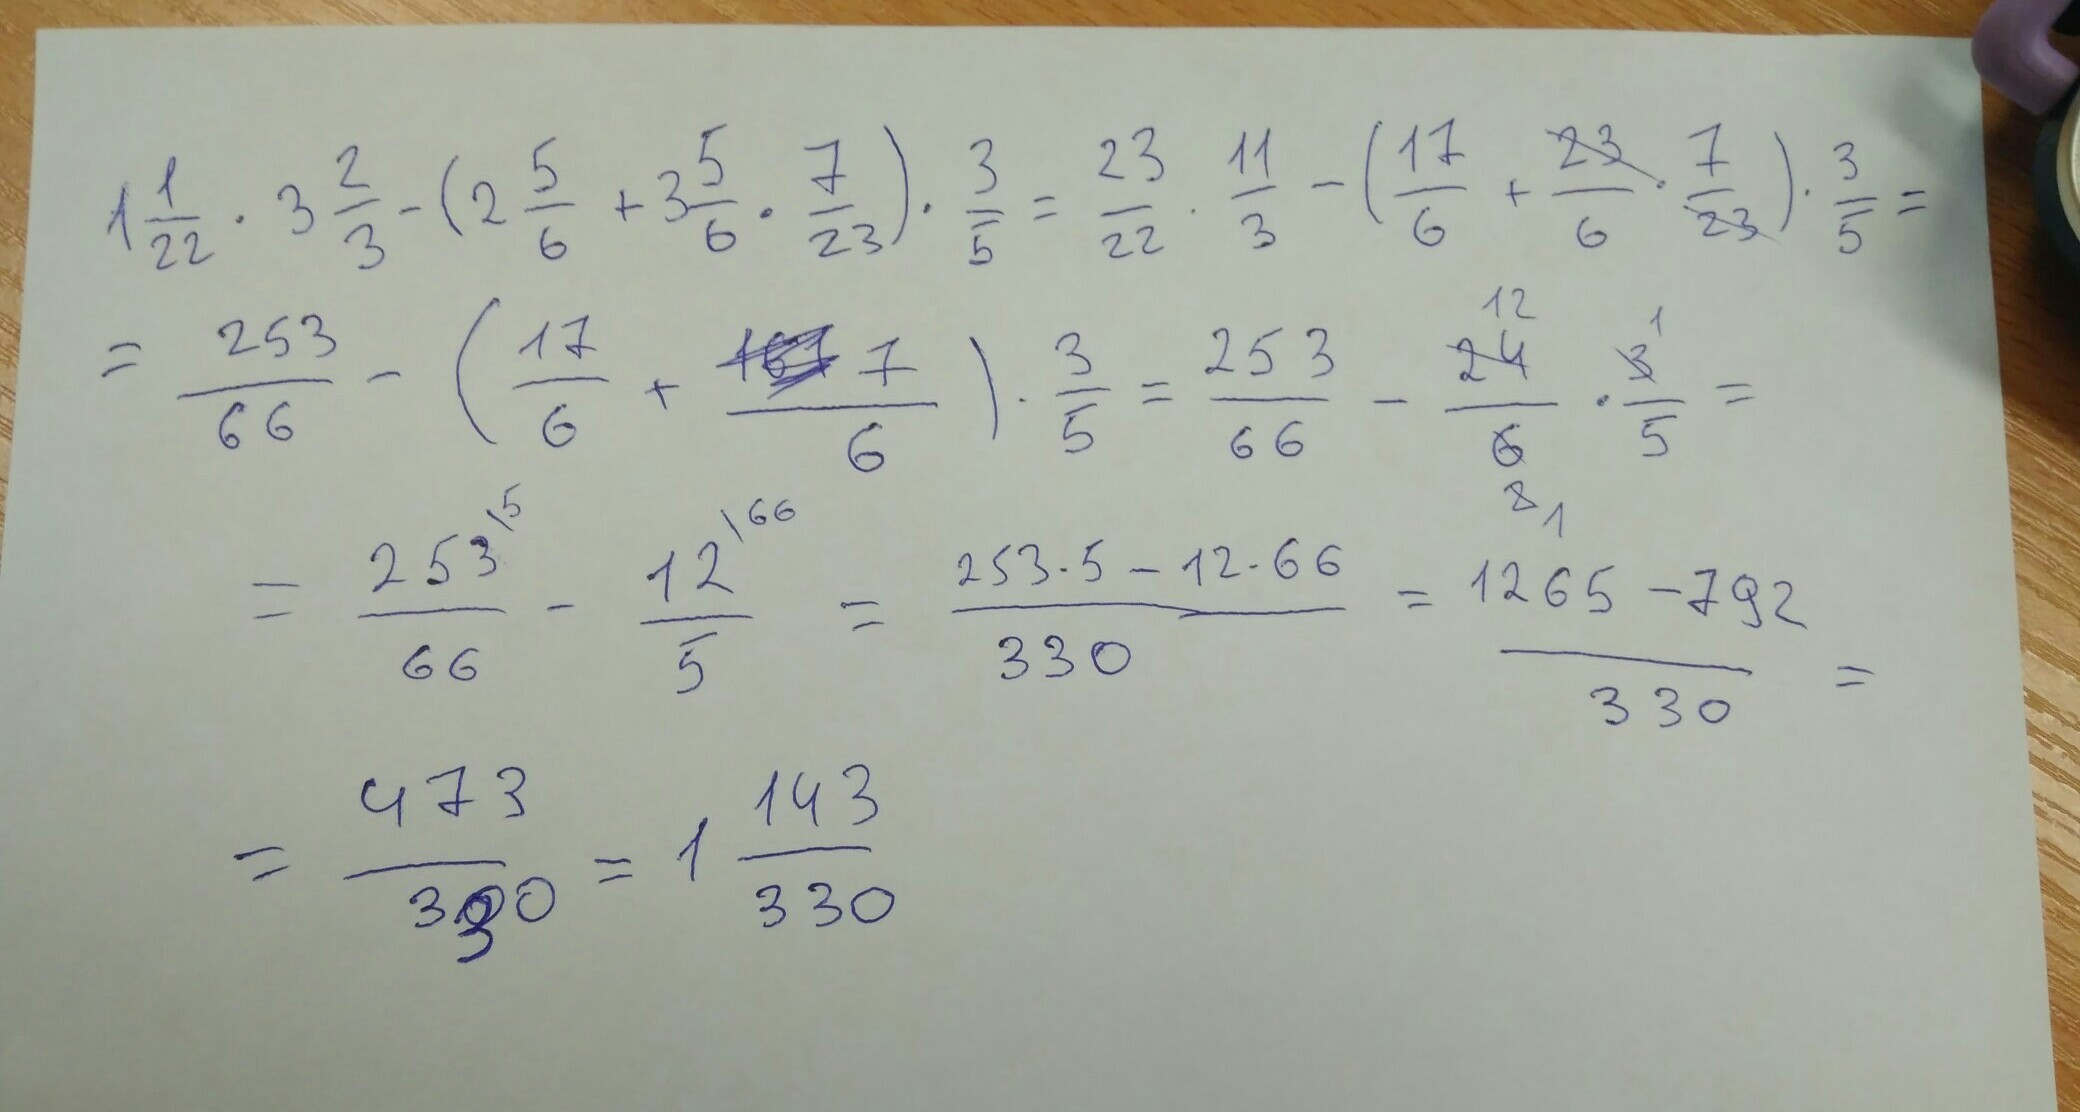 1 1/22 · 3 2/3 - (2 5/6 + 3 5/6 · 7/23) · 3/5 = 23/22 · 11/3 - (17/6 + 23/6 · 7/23) · 3/5 =
= 253/66 - (17/6 + 7/6) · 3/5 = 253/66 - 24 12/6 2 1 · 3 1/5 =
= 253\5/66 - 12\66/5 = 253·5 - 12·66/330 = 1265 - 792/330 =
= 473/330 = 1 143/330